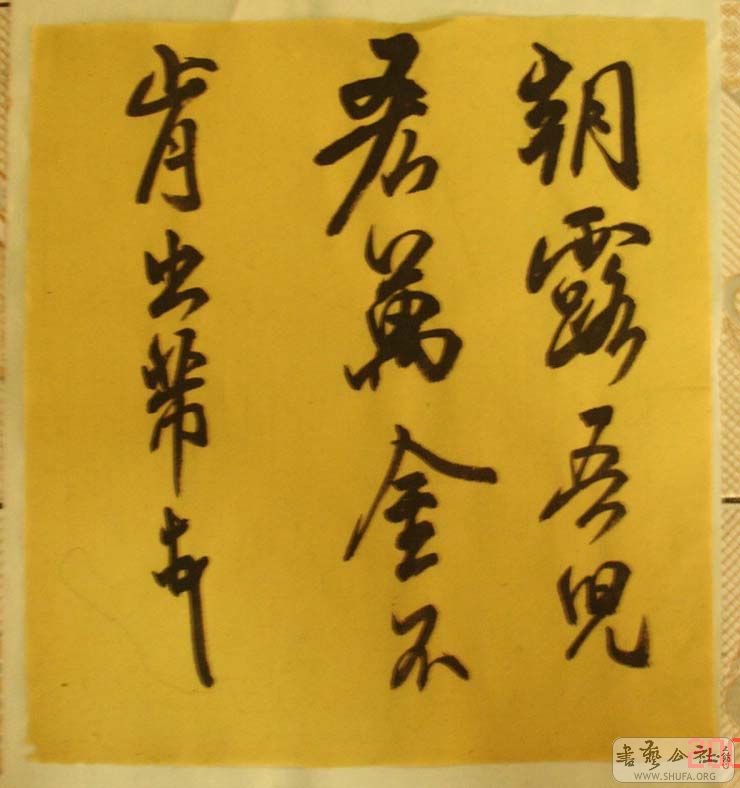 朝露吾兒
君萬金不
肯出
書藝公社
WWW.SHUFA.ORG